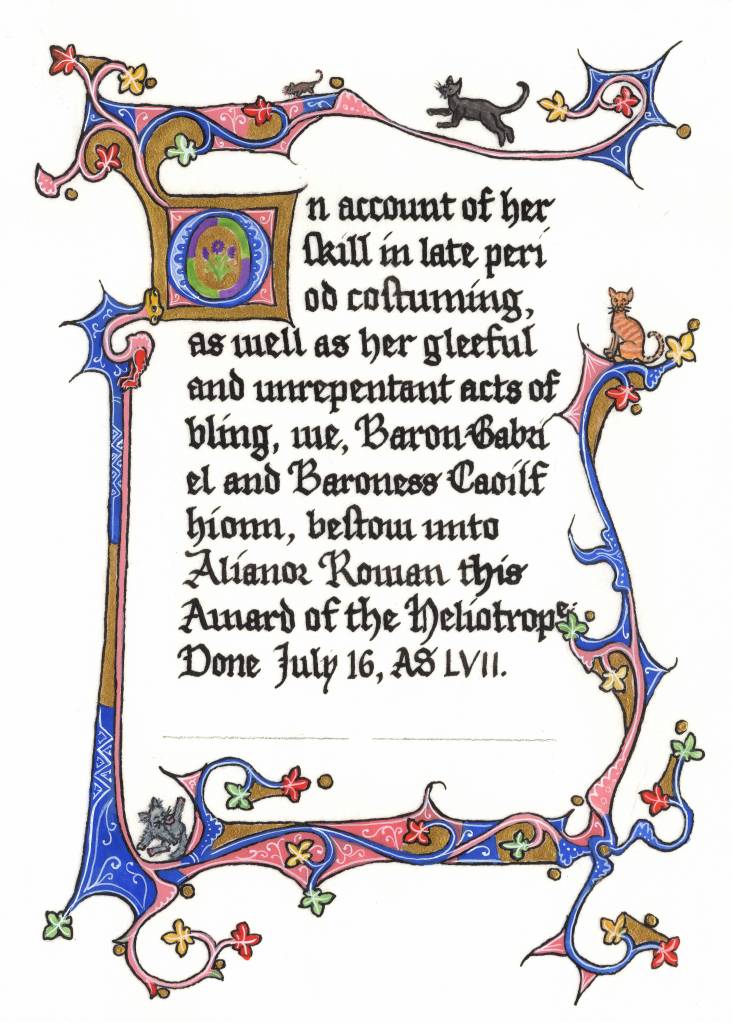 On account of her
skill in late peri
od costuming,
as well as her gleeful
and unrepentant acts of
bling, we, Baron Gabri
el and Baroness Caoilf
hionn, bestow unto
Alianor Rowan this
Award of the Heliotrope
Done July 16, AS LVII.